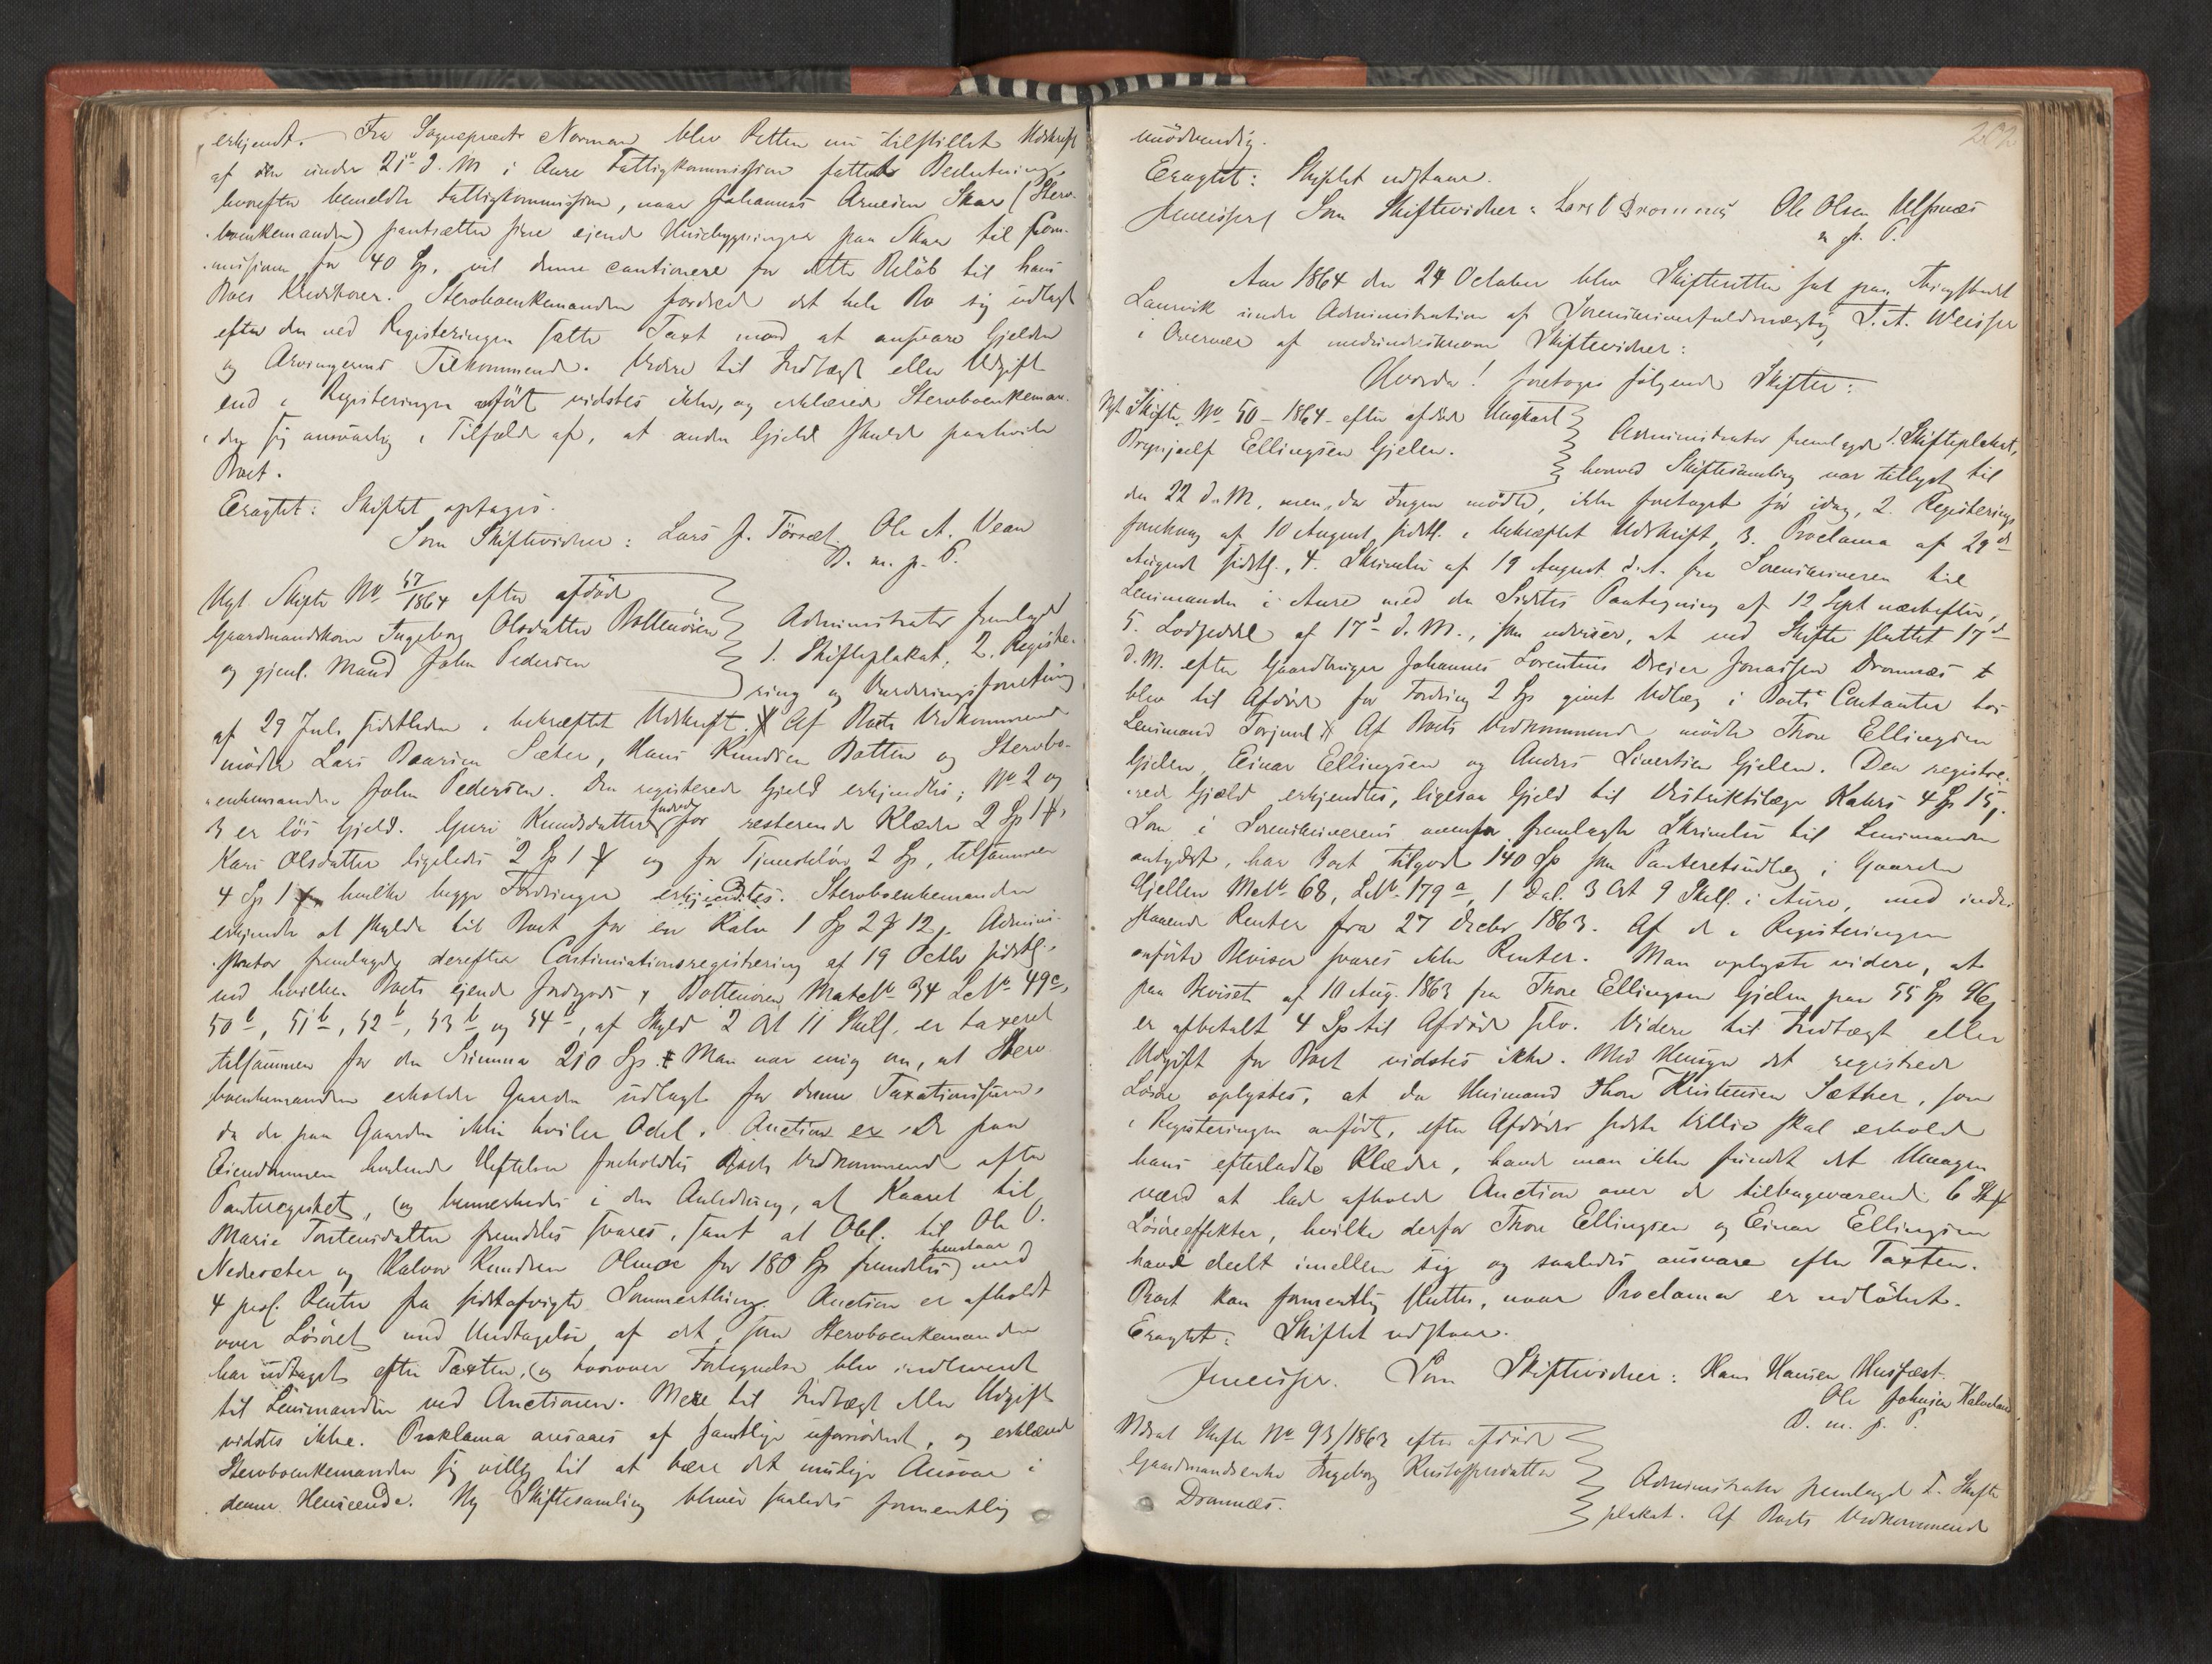 erkjendt. Fra Sognepræst Norman blev Retten nu tilstillet Udskrift
af den under 21de d. M. i Aure Fattigkommission fattede Beslutning,
hvorefter bemeldte Fattigkommission, naar Johannes Arnesen Skar (Sterv-
boenkemanden) pantsætter sine eiende Huusbygninger paa Skar til Kom-
missionen for 40 Sp., vil denne cautionere for dette Beløb til hans
Børs Kreditorer. Stervboenkemanden fordrede det hele Bo sig udlagt
efter den ved Registeringen satte Taxt mod at ansvare Gjelden
og Arvingernes Tilkommende. Videre til Indtægt eller Udgift
end i Registeringen anført vidstes ikke, og erklærede Stervboenkeman-
den sig ansvarlig i Tilfælde af, at anden Gjeld skulde paahvile
Boet.
Eragtet: Skiftet optages.
Som Skiftevidner: Lars J. Tørset, Ole A. Vean
P. m. p. P.
Nyt Skifte No 57/1864 efter afdøde
Gaardmandskone Ingeborg Olsdatter Bottenøren
og gjenl. Mand John Pedersen
Administrator fremlagde
1. Skifteplakat, 2. Registe-
ring og Vurderingsforretning
af 29 Juli sidstleden i bekræftet Udskrift. Af Boets Vedkommende
mødte Lars Baarsen Sæter, Hans Knudsen Botten og Stervbo-
enkemanden John Pedersen. Den registerede Gjeld erkjendtes; No 2 og
3 er løs Gjeld. Guri Knudsdatter fordrede for resterende Klæder 2 Sp 1 ,
Kari Olsdatter ligeledes 2 Sp 1 og for Tjenesteløn 2 Sp, tilsammen
4 Sp 1 , hvilke begge Fordringer erkjendtes. Stervboenkemanden
erkjendte at skylde til Boet for en Kalv 1 Sp 2 12. Admini-
strator fremlagde derefter Continuationsregistrering af 19 Octbr sidstl.,
ved hvilken Boets eiende Jordgods i Bottenøren MatrNo 34 LNo 49c,
50b, 51b, 52b, 53b og 54b, af Skyld 2 Ort 11 Skill. er taxeret
tilsammen for den Summa 210 Sp. Man var enig om, at Sterv-
boenkemanden erholder Gaarden udlagt for denne Taxationssum,
da der paa Gaarden ikke hviler Odel. Auction er De paa
Eiendommen heftende Heftelser foreholdtes Boets Vedkommende efter
Panteregistret, og bemærkedes i den Anledning, at Kaaret til
Marie Torstensdatter fremdeles svares, samt at Obl. til Ole O.
Nedresæter og Halvor Knudsen Olmoe for 180 Sp fremdeles henstaar med
4 proC. Renter fra sidstafvigte Sommerthing. Auction er afholdt
over Løsøret med Undtagelse af det, som Stervboenkemanden
har udtaget efter Taxten, og hvorover Fortegnelse blev indleveret
til Lensmanden ved Auctionen. Mere til Indtægt eller Udgift
vidstes ikke. Proklama ansaaes af samtlige ufornødent, og erklærede
Stervboenkemanden sig villig til at bære det mulige Ansvar i
denne Henseende. Ny Skiftesamling bliver saaledes formentlig
202
unødvendig.
Eragtet: Skiftet udstaar.
JWeisser Som Skiftevidner: Lars O Dromnes Ole Olsen Ulfsnæs
m p. P.
Aar 1864 den 24 October blev Skifteretten sat paa Thingstedet
Laurvik under Administration af Sorenskriverfuldmægtig J. A. Weisser
i Overvær af medunderskrevne Skiftevidner:
Hvorda! foretoges følgende Skifter:
Nyt Skifte No 50 - 1864 - efter afdøde Ungkarl
Brynjulf Ellingsen Gjelen.
Administrator fremlagde 1. Skifteplakat,
hvorved Skiftesamling var tillyst til
den 22 d. M., men, da Ingen mødte, ikke foretaget før idag, 2. Registerings
forretning af 10 August sidstl. i bekræftet Udskrift, 3. Proclama af 29de
August sidstl., 4. Skrivelse af 19 August d. A. fra Sorenskriveren til
Lensmanden i Aure med den Sidstes Paategning af 12 Sept næstefter,
5. Lodseddel af 17de d. M., som udviser, at ved Skifte sluttet 17de
d. M. efter Gaardbruger Johannes Lorentius Dreier Jonassen Dromnæs
blev til Afdøde for Fordring 2 Sp givet Udlæg i Boets Contanter hos
Lensmand Torjuul. Af Boets Vedkommende mødte Thore Ellingsen
Gjelen, Einar Ellingsen og Anders Sivertsen Gjelen. Den registre-
rede Gjæld erkjendtes, ligesaa Gjeld til Distriktslæge Kahrs 4 Sp 15 .
Som i Sorenskriverens ovenfor fremlagte Skrivelse til Lensmanden
antydet, har Boet tilgode 140 Sp som Panteretsudlæg i Gaarden
Gjellen MaNo 68, LNo 179a, 1 Dal. 3 Ort 9 Skill. i Aure, med inde-
staaende Renter fra 27 Decbr 1863. Af de i Registeringen
anførte Beviser svares ikke Renter. Man oplyste videre, at
paa Beviset af 10 Aug. 1863 fra Thore Ellingsen Gjelen paa 55 Sp 96
er afbetalt 4 Sp til Afdøde selv. Videre til Indtægt eller
Udgift for Boet vidstes ikke. Med Hensyn det registrede
Løsøre oplystes, at da Huusmand Thore Kristensen Sæther, som
i Registeringen anført, efter Afdødes sidste Villie skal erholde
hans efterladte Klæder, havde man ikke fundet det Umagen
værd at lade afholde Auction over de tilbageværende 6 Stk
Løsøreeffekter, hvilke derfor Thore Ellingsen og Einar Ellingsen
havde deelt imellem sig og saaledes ansvare efter Taxten.
Boet kan formentlig sluttes, naar Proclama er udløbet.
Eragtet: Skiftet udstaar.
JWeisser. Som Skiftevidner: Hans Hansen Husfæst.
Ole Johnsen
P. m. p. P.
Udsat Skifte No 93/1863 efter afdøde
Gaardmandsenke Ingeborg Kristoffersdatter
Dromnæs.
Administrator fremlagde 1. Skifte
plakat. Af Boets Vedkommende